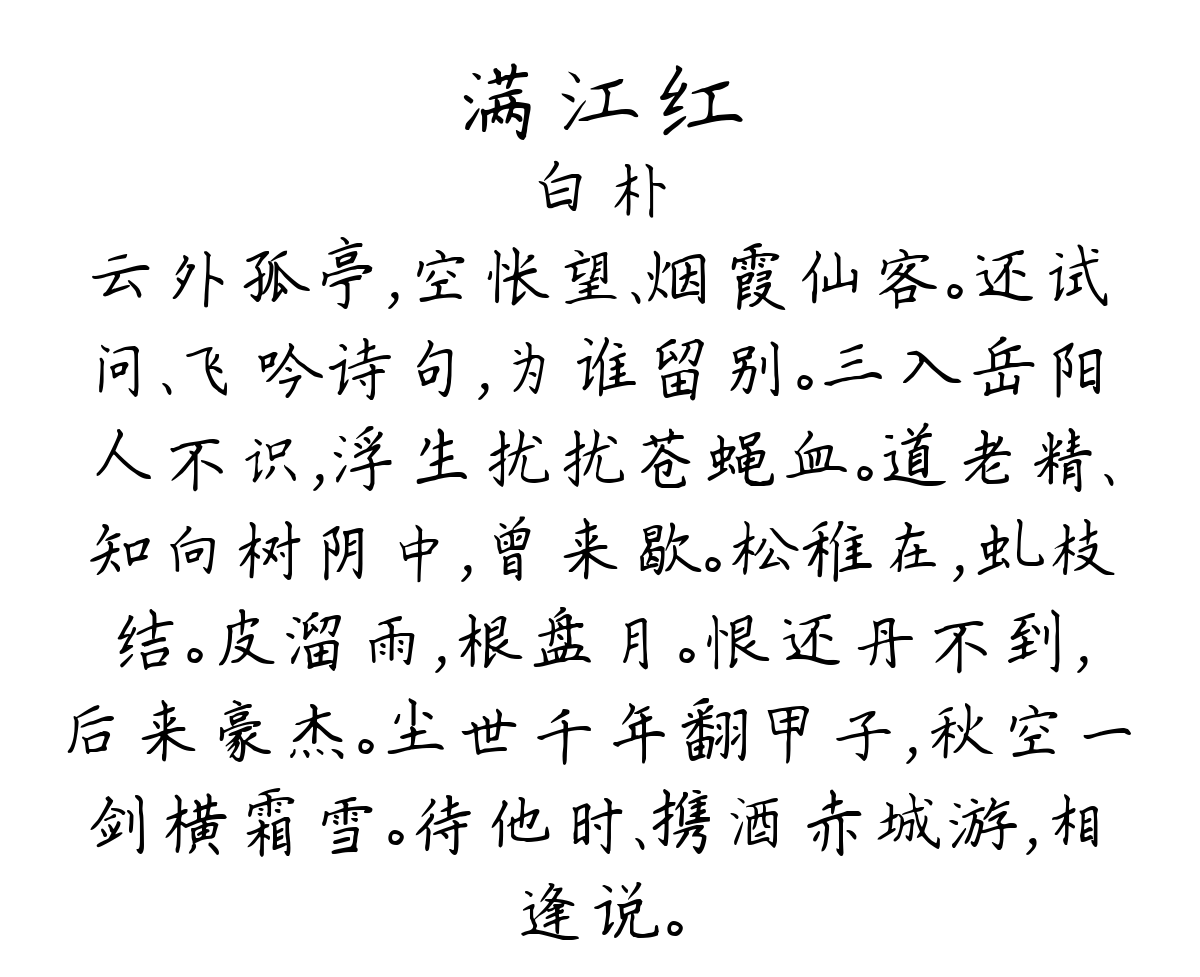 满江红
白朴
云外孤亭,空怅望、烟霞仙客。还试
问、飞吟诗句,为谁留别。三入岳阳
人不识,浮生扰扰苍蝇血。道老精、
知向树阴中,曾来歇。松稚在,虬枝
结。皮溜雨,根盘月。恨还丹不到,
后来豪杰。尘世千年翻甲子,秋空一
剑横霜雪。待他时、携酒赤城游,相
逢说。